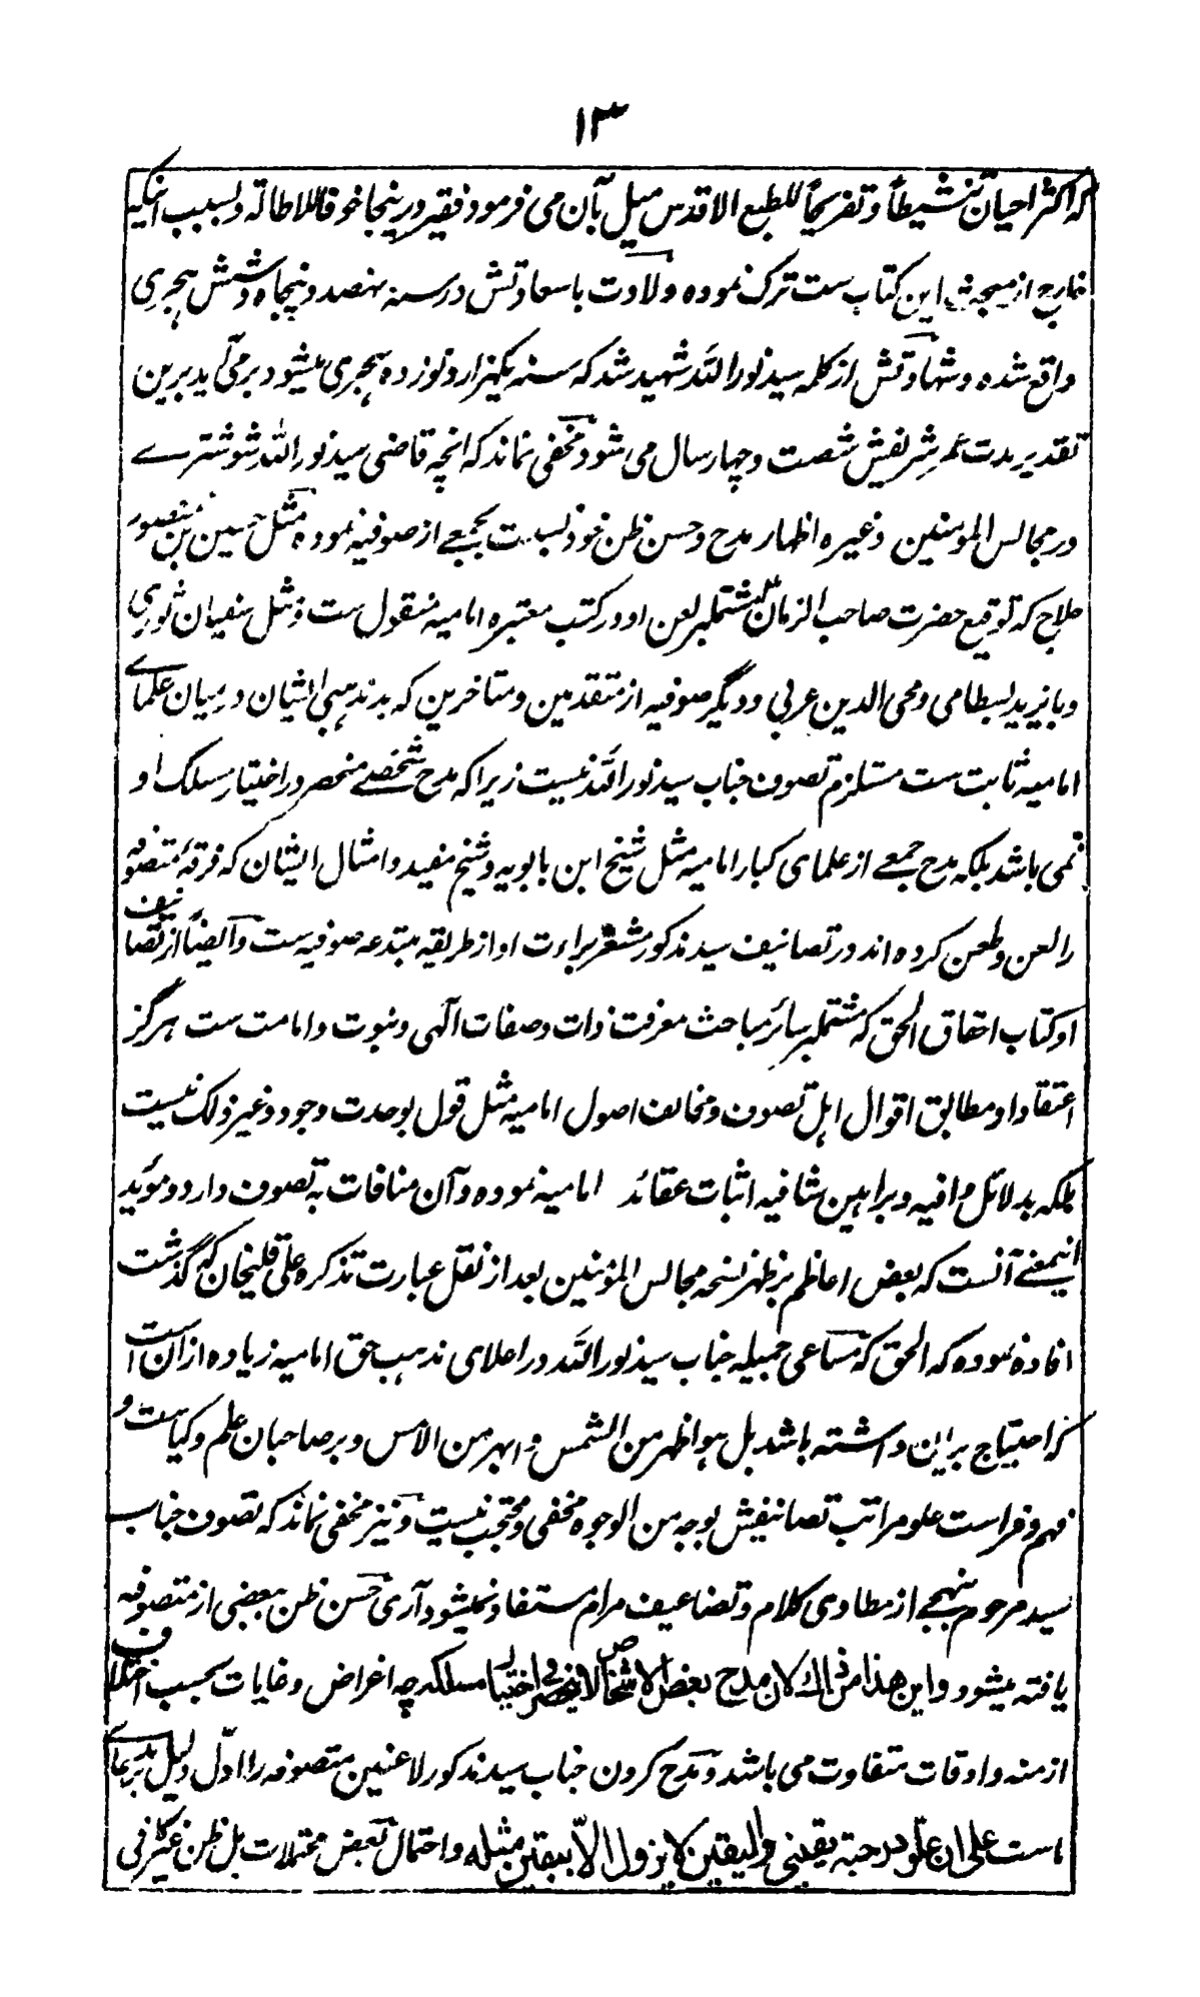 ۱۳
که اکثر احیان تنشیطاً و تفریحاً للطبع الاقدس میل بآن می فرمود فقیر درینجا خوفاً للاطالة و بسبب اینکه
خارج از مبحث این کتاب ست ترک نموده ولادت باسعادتش در سنه نهصد و پنجاه و شش هجری
واقع شده و شهادتش از کلمه سید نور الله شهید شد که سنه یکهزار و نوزده هجری میشود برمی آید برین
تقدیر مدت عمر شریفش شصت و چهار سال می شود مخفی نماند که انچه قاضی سید نور الله شوشترے
در مجالس المومنین وغیره اظهار مدح و حسن ظن خود نسبت بجمعے از صوفیه نموده مثل حسین بن منصور
حلاج که توقیع حضرت صاحب الزمان مشتملبر لعن او در کتب معتبره امامیه منقول ست و مثل سفیان ثوری
و بایزید بسطامی و محی الدین عربی و دیگر صوفیه از متقدمین و متاخرین که بد مذهبی ایشان در میان علمای
امامیه ثابت ست مستلزم تصوف جناب سید نور الله نیست زیرا که مدح شخصے منحصر در اختیار مسلک او
نمی باشد بلکه مدح جمعے از علمای کبار امامیه مثل شیخ ابن بابویه و شیخ مفید و امثال ایشان که فرقۀ متصوفه
را لعن و طعن کرده اند در تصانیف سید مذکور مشعر براءت او از طریقه مبتدعه صوفیه ست و ایضاً از تصانیف
او کتاب احقاق الحق که مشتملبر سائر مباحث معرفت ذات و صفات الٰهی و نبوت و امامت ست هرگز
اعتقاد او مطابق اقوال اهل تصوف و مخالف اصول امامیه مثل قول بوحدت وجود و غیر ذلک نیست
بلکه بدلائل وافیه و براهین شافیه اثبات عقائد امامیه نموده و آن منافات به تصوف دارد و موید
اینمعنے آنست که بعض اعاظم بر ظهر نسخه مجالس المومنین بعد از نقل عبارت تذکره علی قلیخان که گذشت
افاده نموده که الحق که مساعی جمیله جناب سید نور الله در اعلای مذهب حق امامیه زیاده از آن است
کز احتیاج براین داشته باشد بل هو اظهر من الشمس و ابهر من الامس و بر صاحبان علم و کیاست و
فهم و فراست علو مراتب تصانیفش بوجه من الوجوه مخفی و محتجب نیست و نیز مخفی نماند که تصوف جناب
سید مرحوم بنهجے از مطاوی کلام و تضاعیف مرام مستفاد نمیشود آری حسن ظن ببعضی از متصوفه
یافته میشود و این هذا من ذاك لان مدح بعض الاشخاص لا ینحصر فی اختیار مسلکه چه اغراض و غایات بحسب اختلاف
ازمنه و اوقات متفاوت می باشد و مدح کردن جناب سید مذکور لاعنین متصوفه را ادلّ دلیل بر مدعای
است علی ان علو درجته یقینی و الیقین لا یزول الا بیقین مثله و احتمال بعض محتملات بل ظن غیر کافی